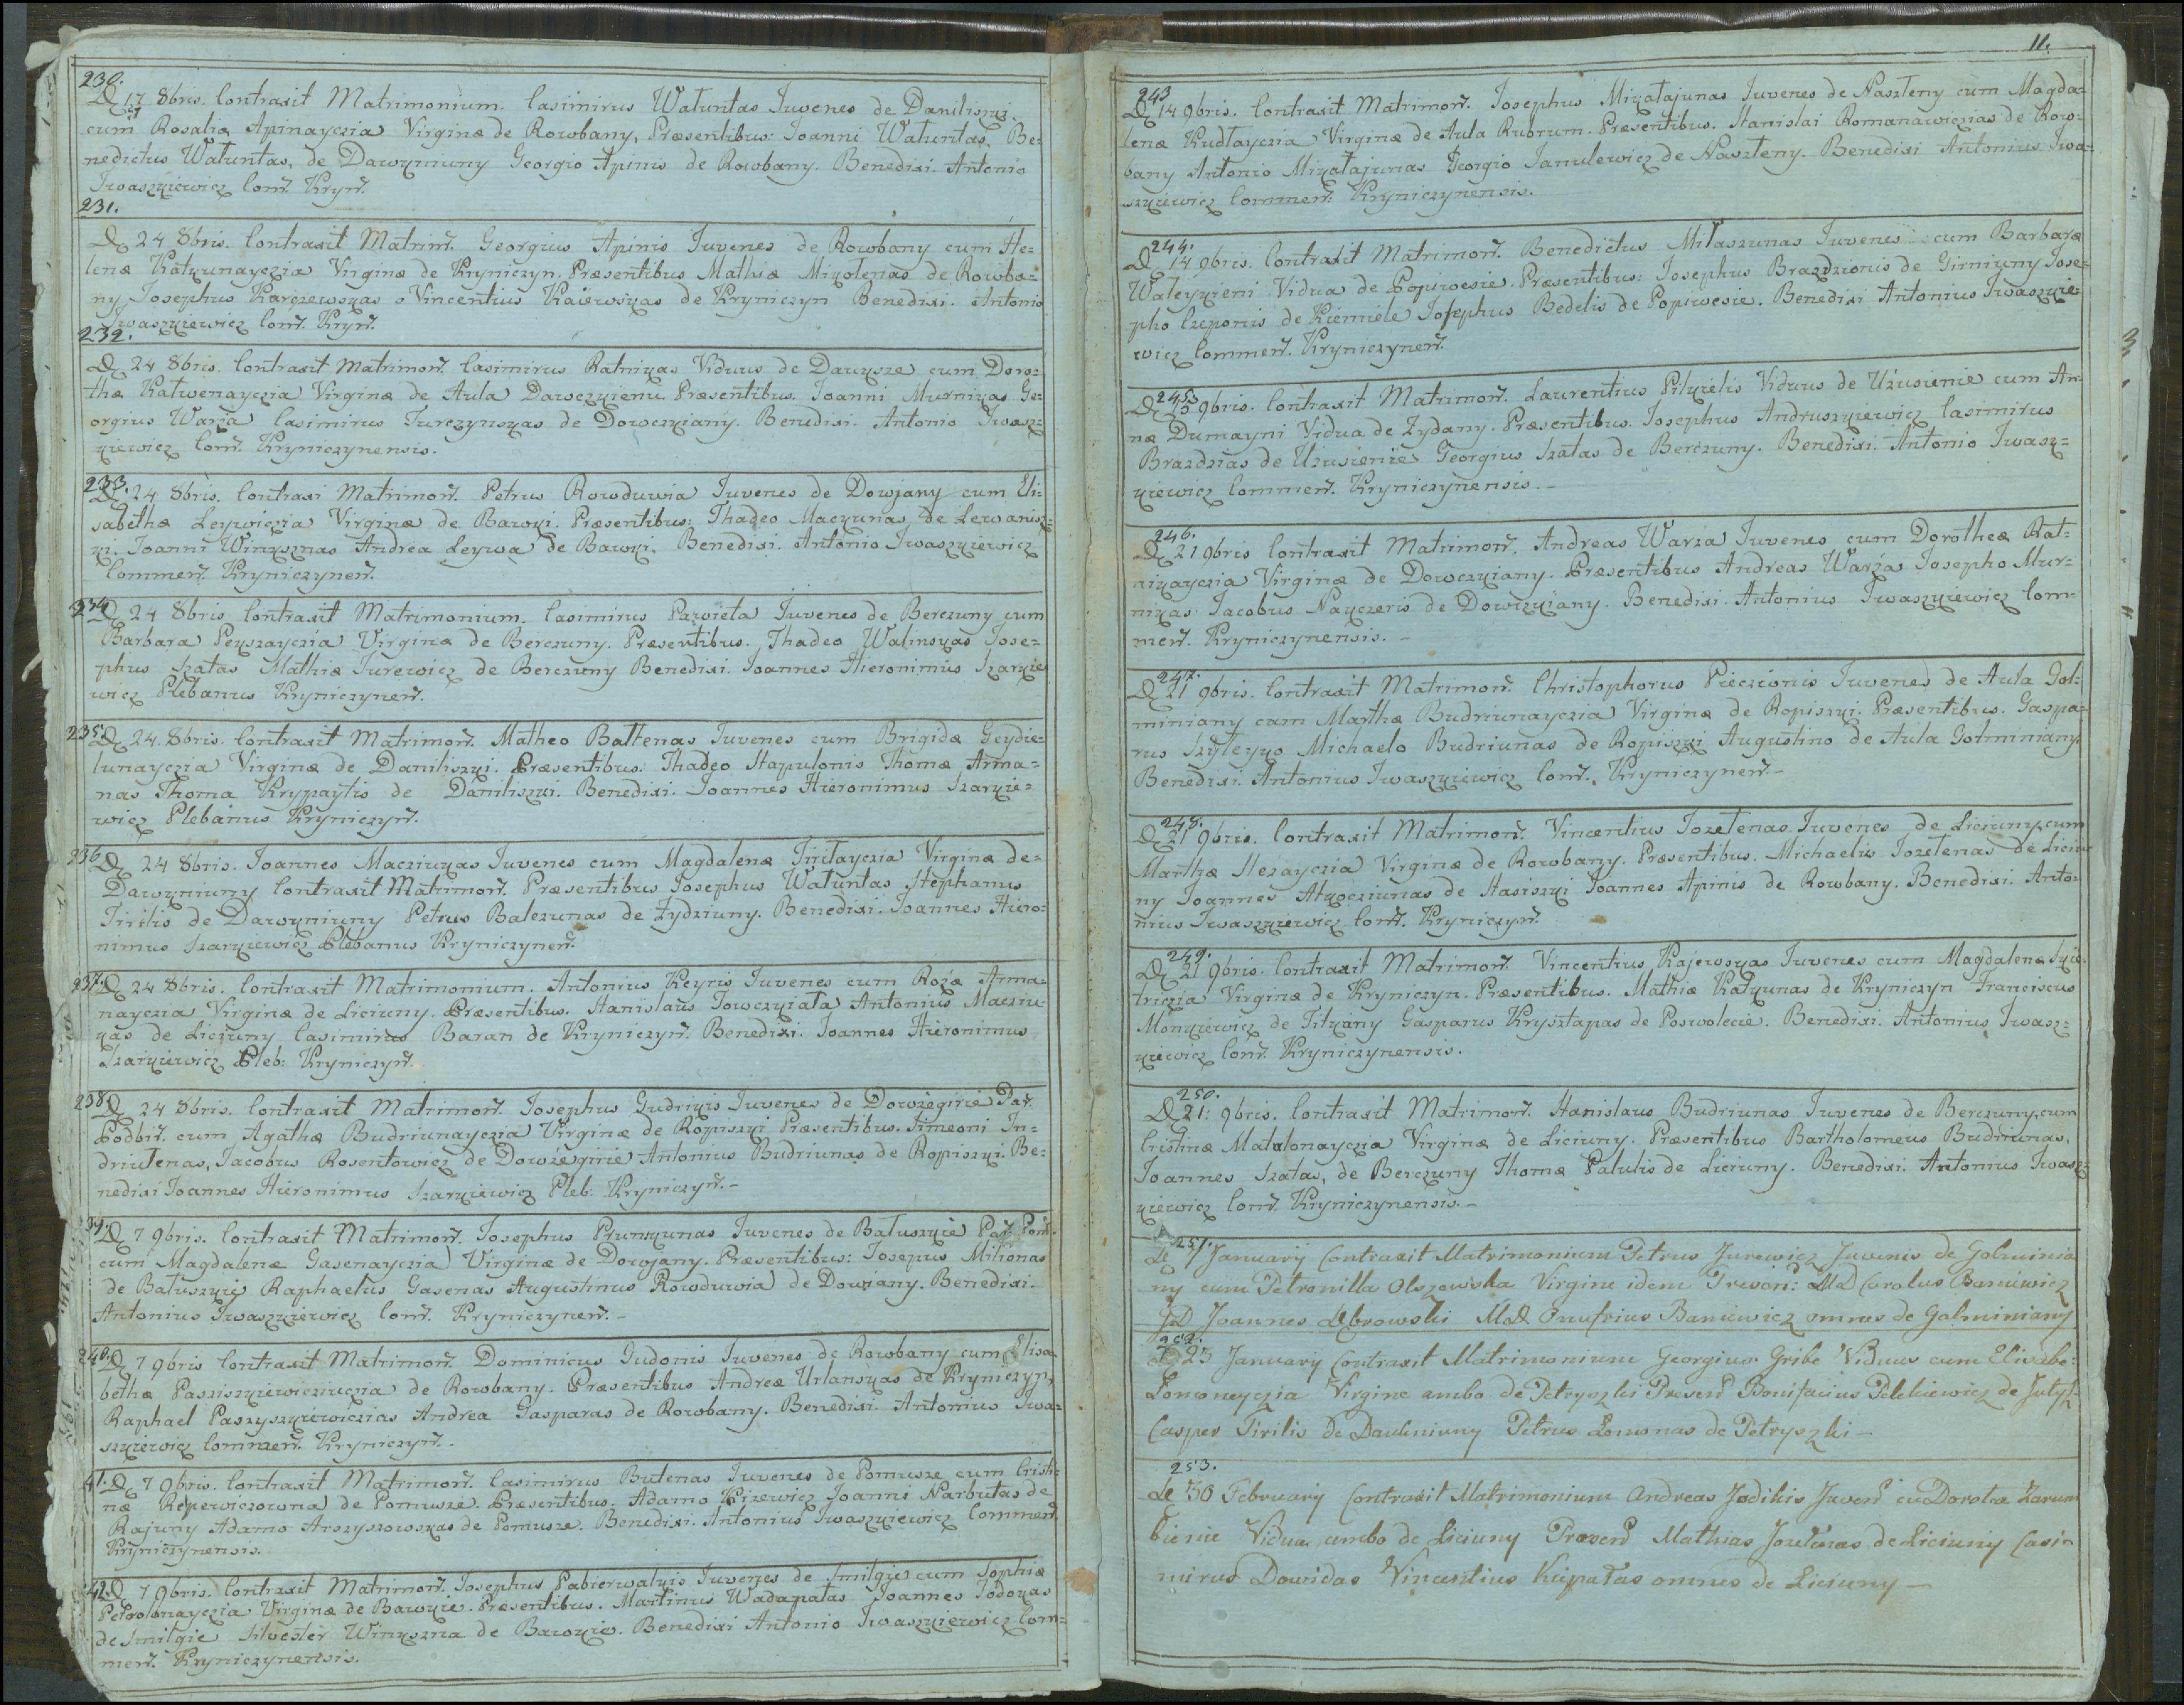 230.
D 17 8bris. Contraxit Matrimonium. Casimirus Watuntas Juvenes de Daniliszki.
cum Rosalia Apinayczia Virginæ de Rowbany, Præsentibus: Joanni Watuntas, Be=
nedictus Watuntas, de Dawkniuny Georgio Apinis de Rowbany. Benedixi. Antonio
Iwaszkiewicz Com̃. Kryñ.
231.
D 24 8bris. Contraxit Matrim̃. Georgius Apinis Juvenes de Rowbany cum He=
lenæ Katkunayczia Virginæ de Kryniczyn. Præsentibus Mathiæ Mikolenas de Rowba=
ny Josephus Karczewskas Vincentius Kaiewskas de Kryniczyn Benedixi. Antonio
Iwaszkiewicz Com̃. Kryñ.
232.
D 24 8bris. Contraxit Matrimoñ. Casimirus Ratnikas Viduus de Dauksze cum Doro=
thæ Katwenayczia Virginæ de Aula Dawczkienu Præsentibus. Joanni Murnikas Ge=
orgius Warża Casimirus Turczynskas de Dowczkiany. Benedixi. Antonio Iwasz=
kiewicz Com̃. Kryniczynensis.
233.
D 24 8bris. Contraxi Matrimoñ. Petrus Rowduwia Juvenes de Dowjany cum Eli=
sabethæ Leywiczia Virginæ de Bawki. Præsentibus: Thadeo Mackunas de Lewanisz=
ki. Joanni Winksznas Andrea Leywa de Bawki. Benedixi. Antonio Iwaszkiewicz
Commeñ. Kryniczyneñ.
234
D 24 8bris Contraxit Matrimonium. Casimirus Pawieta Juvenes de Berczuny cum
Barbara Peyszayczia Virginæ de Berczuny. Præsentibus. Thadeo Walinskas Jose=
phus Szatas Mathiæ Jurewicz de Berczuny Benedixi. Joannes Hieronimus Szarkie
wicz Plebanus Kryniczyneñ.
235.
D 24. 8bris. Contraxit Matrimoñ. Matheo Baltenas Juvenes cum Brigidæ Geydie=
lunayczia Virginæ de Daniliszki. Præsentibus: Thadeo Stapulonis Thomæ Arma=
nas Thoma Krypaytis de Daniliszki. Benedixi. Joannes Hieronimus Szarkie=
wicz Plebanus Kryniczyñ.
236
D 24 8bris. Joannes Macziukas Juvenes cum Magdalenæ Tirilayczia Virginæ de=
Dawkniuny Contraxit Matrimoñ. Præsentibus Josephus Watuntas Stephanus
Tirilis de Dawkniuny Petrus Balczunas de Żydziuny. Benedixi. Joannes Hiero=
nimus Szarkiewicz Plebanus Kryniczyneñ.
237.
D 24 8bris. Contraxit Matrimonium. Antonius Keyris Juvenes cum Rożæ Arma=
nayczia Virginæ de Liciuny. Præsentibus. Stanislaus Towczkiata Antonius Macziu
kas de Liciuny Casimirus Baran de Kryniczyñ. Benedixi. Joannes Hieronimus
Szarkiewicz Pleb: Kryniczyñ.
238
D 24 8bris. Contraxit Matrimoñ. Josephus Gudrikis Juvenes de Dowżegirie Par.
Podbir̃. cum Agathæ Budriunayczia Virginæ de Ropiszki Præsentibus. Simeoni In=
driulenas, Jacobus Rosentowicz de Dowżegirie Antonius Budriunas de Ropiszki. Be=
nedixi Joannes Hieronimus Szarkiewicz Pleb. Kryniczyñ.-
39.
D 7 9bris. Contraxit Matrimoñ. Josephus Prunskunas Juvenes de Batuszkie Par. Pom̃.
cum Magdalenæ Gasenayczia Virginæ de Dowjany. Præsentibus: Josepus Milionas
de Batuszkie Raphaelus Gasenas Augustinus Rowduwia de Dowiany. Benedixi.
Antonius Iwaszkiewicz Com̃. Kryniczyneñ.-
40.
D 7 9bris Contraxit Matrimoñ. Dominicus Gudonis Juvenes de Rowbany cum Elisa
bethæ Pasziszkiewicziuczia de Rowbany. Præsentibus Andreæ Urlanskas de Kryniczyn,
Raphael Paszyszkiewiczias Andrea Gasparas de Rowbany. Benedixi. Antonius Iwa=
szkiewicz Commeñ. Kryniczyñ.
41.
D 7 9bris. Contraxit Matrimoñ. Casimirus Butenas Juvenes de Pomusze cum Cristi=
næ Repewiczowna de Pomusze. Præsentibus. Adamo Kizewicz Joanni Narbutas de
Rajuny Adamo Arszyszowskas de Pomusze. Benedixi. Antonius Iwaszkiewicz Commeñ.
Kryniczynensis.
42
D 7 9bris. Contraxit Matrimoñ. Josephus Pabierwalkis Juvenes de Smilgie cum Sophiæ
Petrolonayczia Virginæ de Bawkie. Præsentibus. Martinus Wadapalas Joannes Jodokas
de Smilgie Silvester Winkszna de Bawkie. Benedixi Antonio Iwaszkiewicz Com=
meñ. Kryniczynensis.
11.
243
D 14 9bris. Contraxit Matrimoñ. Josephus Mikatajunas Juvenes de Naszleny cum Magda=
lenæ Kudlayczia Virginæ de Aula Rubrum. Præsentibus. Stanislai Romanawiczias de Row=
bany Antonio Mikatajunas Georgio Janulewicz de Naszleny. Benedixi Antonius Iwa=
szkiewicz Commeñ: Kryniczynensis.
244.
D 14 9bris. Contraxit Matrimoñ. Benedictus Mitaszunas Juvenes cum Barbaræ
Waleykieni Vidua de Popiwesie. Præsentibus: Josephus Brazdzionis de Girniuny Jose=
pho Czeponis de Kiemiele Josephus Bedelis de Popiwesie. Benedixi Antonius Iwaszkie
wicz Commeñ. Kryniczyneñ.
245
D 15 9bris. Contraxit Matrimoñ. Laurentius Pilkielis Viduus de Użusienie cum An=
næ Dumayni Vidua de Żydany. Præsentibus. Josephus Andruszkiewicz Casimirus
Brazdzias de Użusienie Georgius Szatas de Berczuny. Benedixi. Antonio Iwasz=
kiewicz Commeñ. Kryniczynensis.-
246.
D 21 9bris Contraxit Matrimoñ. Andreas Warża Juvenes cum Dorotheæ Rat=
nikayczia Virginæ de Dowczkiany. Præsentibus Andreas Warża Josepho Mur=
nikas Jacobus Nayczeris de Dowczkiany. Benedixi. Antonius Iwaszkiewicz Com=
meñ. Kryniczynensis.-
247.
D 21 9bris. Contraxit Matrimoñ. Christophorus Pieczionis Juvenes de Aula Gol=
miniany cum Marthæ Budriunayczia Virginæ de Ropiszki. Præsentibus. Gaspa=
rus Szyleyko Michaelo Budriunas de Ropiszki Augustino de Aula Golminiany.
Benedixi. Antonius Iwaszkiewicz Com̃. Kryniczyneñ.-
248.
D 21 9bris. Contraxit Matrimoñ. Vincentius Jozelenas Juvenes de Liciuny cum
Marthæ Slezayczia Virginæ de Rowbany. Præsentibus. Michaelis Jozelenas de Liciu
ny Joannes Atkocziunas de Stasiszki Joannes Apinis de Rowbany. Benedixi. Anto=
nius Iwaszkiewicz Com̃. Kryniczyñ.
249.
D 21 9bris. Contraxit Matrimoñ. Vincentius Kajewskas Juvenes cum Magdalenæ Szie
triczia Virginæ de Kryniczyn. Præsentibus. Mathiæ Katkunas de Kryniczyn Franciscus
Monkiewicz de Titkiany Gasparus Krysztapas de Poswolecie. Benedixi. Antonius Iwasz=
kiewicz Com̃. Kryniczynensis.
250.
D 21. 9bris. Contraxit Matrimoñ. Stanislaus Budriunas Juvenes de Berczuny cum
Cristinæ Matalonayczia Virginæ de Liciuny. Præsentibus Bartholomeus Budriunas,
Joannes Szatas, de Berczuny Thomæ Patulis de Liciuny. Benedixi. Antonius Iwasz=
kiewicz Com̃. Kryniczynensis.-
251.
De 7 January Contraxit Matrimonium Petrus Jurewicz Juvenis de Golminia
ny cum Petronilla Olszewska Virgine idem Presen: MD Carolus Baniewicz
GD Joannes Debrowski MD Onufrius Baniewicz omnes de Galminiany
252.
De 25 January Contraxit Matrimonium Georgius Gribe Viduus cum Elisabe:
Łomoneyczia Virgine ambo de Petryszki Presen Bonifacius Petkiewicz de
Casper Tirilis de Daukniuny Petrus Łomonas de Petryszki -
253.
De 30 February Contraxit Matrimonium Andreas Jodikis Juven cu Dorota Zarum
bienie Vidua ambo de Liciuny Presen Mathias Jozelenas de Liciuny Casi=
mirus Dowidas Vincentius Kiepałas omnes de Liciuny -